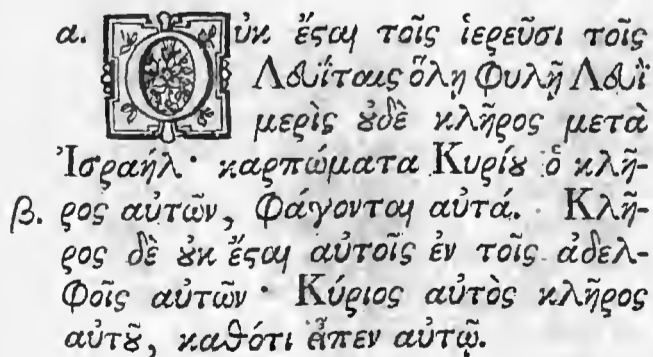 α. Οὐκ ἔσται τοῖς ἱερεῦσι τοῖς
Λευΐταις ὅλῃ φυλῇ Λευῒ
μερὶς οὐδὲ κλῆρος μετὰ
Ἰσραήλ· καρπώματα Κυρίου ὁ κλῆ-
β. ρος αὐτῶν, φάγονται αὐτά. Κλῆ-
ρος δὲ οὐκ ἔσται αὐτοῖς ἐν τοῖς ἀδελ-
φοῖς αὐτῶν· Κύριος αὐτὸς κλῆρος
αὐτοῦ, καθότι εἶπεν αὐτῷ.